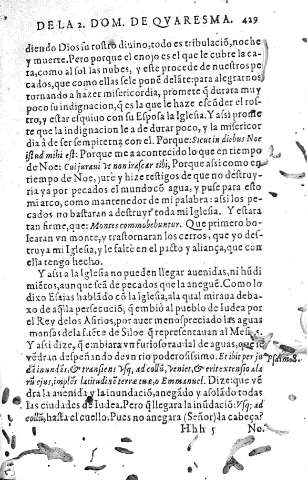 DE LA 2. DOM. DE QVARESMA. 429
diendo Dios su rostro diuino, todo es tribulació, noche
y muerte. Pero porque el enojo es el que le cubre la ca-
ra, como al sol las nubes, y este procede de nuestros pe-
cados, que como ellas se le poné delãte: para alegrarnos
tornando a hazer misericordia, promete q̃ durara muy
poco su indignacion, q̃ es la que le haze escõder el ros-
tro, y estar esquiuo con su Esposa la Iglesia. Y assi prome
te que la indignacion le a de durar poco, y la misericor
dia à de ser sempiterna con el. Porque: Sicut in diebus Noe
istud mihi est: Porque me a acontecido lo que en tiempo
de Noe: Cui juraui ne non irascar tibi, Porque assi como en
tiempo de Noe, jurè y hize testigos de que no destruy-
ria ya por pecados el mundo cõ agua, y puse para esto
mi arco, como mantenedor de mi palabra: assi los pe-
cados no bastaran a destruyr toda mi Iglesia. Y estara
tan firme, que: Montes commobebuntur. Que primero bo-
learan vn monte, y trastornaran los cerros, que yo des-
truya mi Iglesia, y le falte en el pasto y aliança, que con
ella tengo hecho.
Y assi a la Iglesia no pueden llegar auenidas, ni hũdi
miẽtos, aunque sea de pecados que la anegué. Como lo
dixo Esaias hablãdo cõ la Iglesia, a la qual miraua deba-
xo de aq̃lla persecució, q̃ embiò al pueblo de Iudea por
el Rey de los Asirios, por auer menospreciado las aguas
mansas de la fuẽte de Siloe q̃ representauan al Mesias.
Y assi dize, q̃ embiara vn furioso raudal de aguas, que se
vẽdran despeñando de vn rio poderosissimo. Et ibit per ju
dã inundãs, & transiens Vsq; ad collũ, veniet, & erit extensio ala
rũ ejus, implẽs latitudinẽ terræ tuæ, o Emmanuel. Dize: que vẽ
dra la auenida y la inundació, anegádo y asolãdo todas
las ciudades de Iudea. Pero q̃ llegara la inũdació: Vsq; ad
collũ, hasta el cuello. Pues no anegara (Señor) la cabeça?
Hhh 5 No.